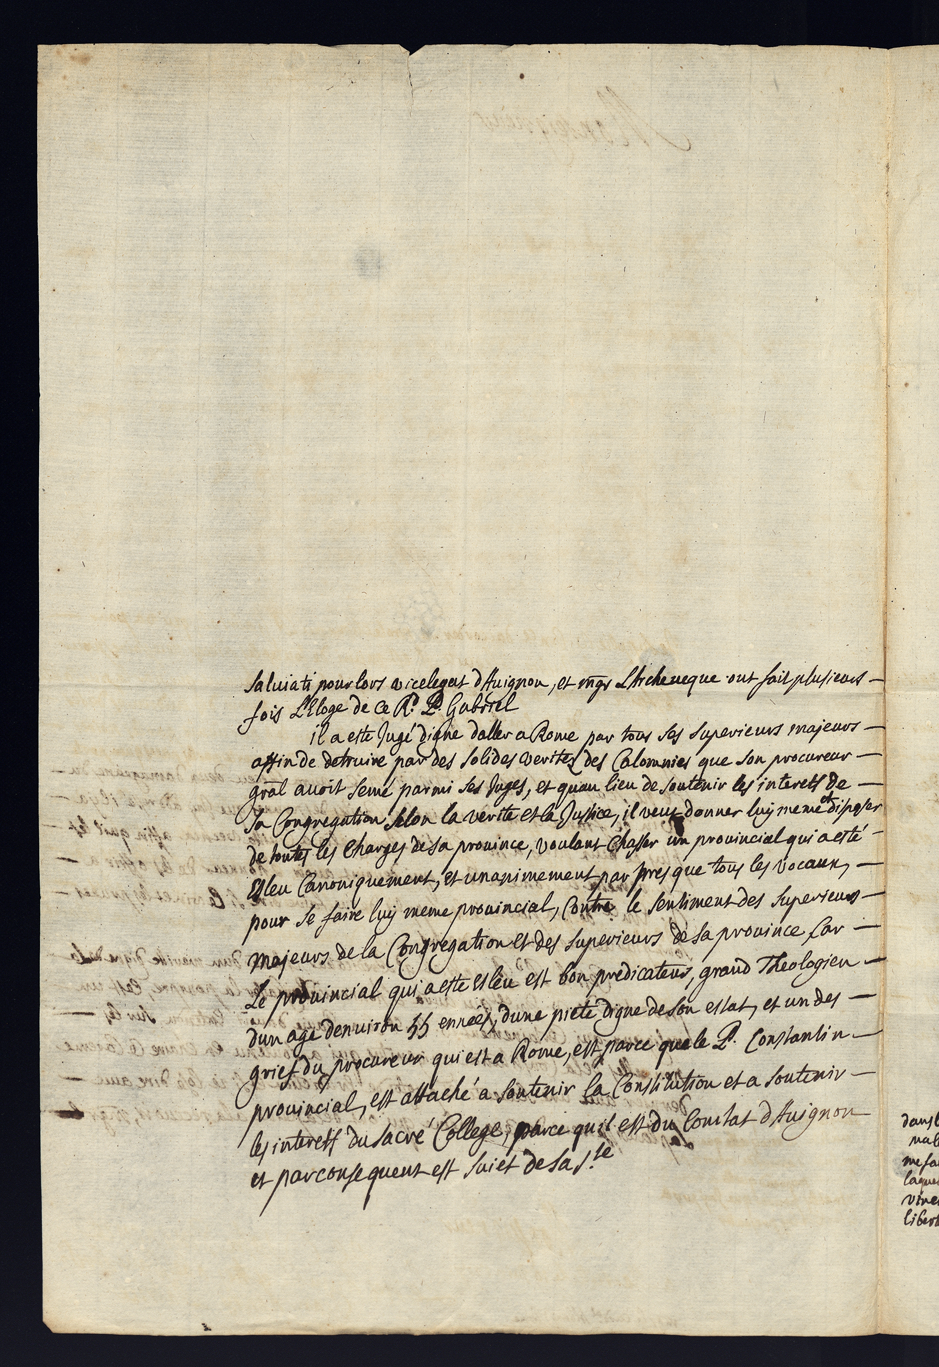 Saluiati pour lors vicelegat d'Auignon, et mgr L'Archeueque ont fait plusieurs
fois L'Eloge de ce Rd. P. Gabriel
il a este Jugé digne daller a Rome par tous ses superieurs majeurs
affin de detruire par des solides veritez des Calomnies que son procureur
gral auoit semé parmi ses Juges, et quau lieu de soutenir les interets de
sa Congregation selon la verité et la Justice, il veut donner luy meme et disposer
de toutes les Charges de sa prouince, voulant Chasser un prouincial qui a esté
Esleu Canoniquement, et unanimement par presque tous les vocaux,
pour se faire luy meme prouincial, Contre le sentiment des superieurs
majeurs de la Congregation et des superieurs de sa prouince, Car
Le prouincial qui a este Esleu est bon predicateur, grand Theologien
dun age denuiron 55 ennées, dune pieté digne de son estat, et un des
grief du procureur qui est a Rome, est parce que le P. Constantin
prouincial, est attaché a soutenir la Constitution et a soutenir
les interest du sacré College, parce quil est du Comtat d'Auignon
et par consequent est suiet de sa Ste
dans
me
vine
libert